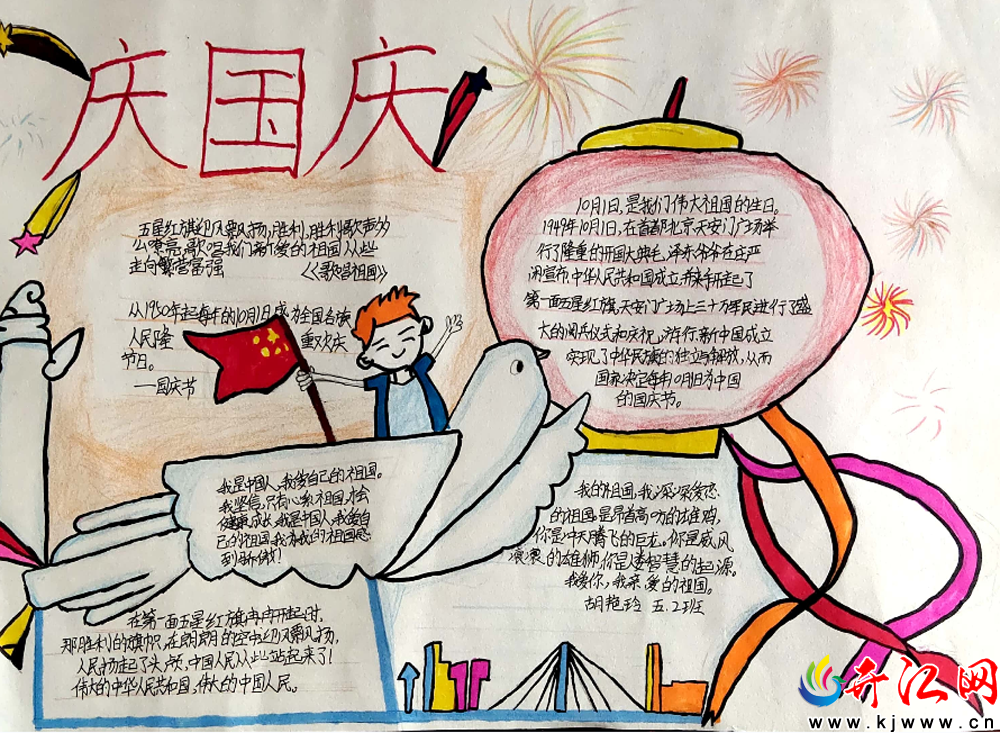 庆国庆
五星红旗迎风飘扬,胜利歌声多
么嘹亮,歌唱我们亲爱的祖国从此
走向繁荣富强 《歌唱祖国》
从1950年起每年的10月1日成为全国各族
人民隆 重欢庆
节日。
—国庆节
10月1日,是我们伟大祖国的生日。
1949年10月1日,在首都北京天安门广场举
行了隆重的开国大典毛泽东爷爷在庄严
闹宣布,中华人民共和国成立,并亲手升起了
第一面五星红旗,天安门广场上三十万军民进行了盛
大的阅兵仪式和庆祝游行,新中国成立
实现了中华民族的独立与解放,从而
国家决定每年10月1日为中国
的国庆节。
我是中国人,我爱自己的祖国。
我坚信,只有心系祖国,才会
健康成长,我是中国人,我爱自
己的祖国,我为我的祖国感
到骄傲!
我的祖国,我深深爱恋
的祖国,是昂首高吭的雄鸡,
你是冲天腾飞的巨龙,你是威风
凛凛的雄狮,你是智慧的起源。
我爱你,我亲爱的祖国。
胡艳玲 五.2班
在第一面五星红旗冉冉升起时,
那胜利的旗帜,在朗朗的空中迎风飘扬,
人民扬起了头,哦,中国人民从此站起来了!
伟大的中华人民共和国,伟大的中国人民。
开江网
www.kjwww.cn